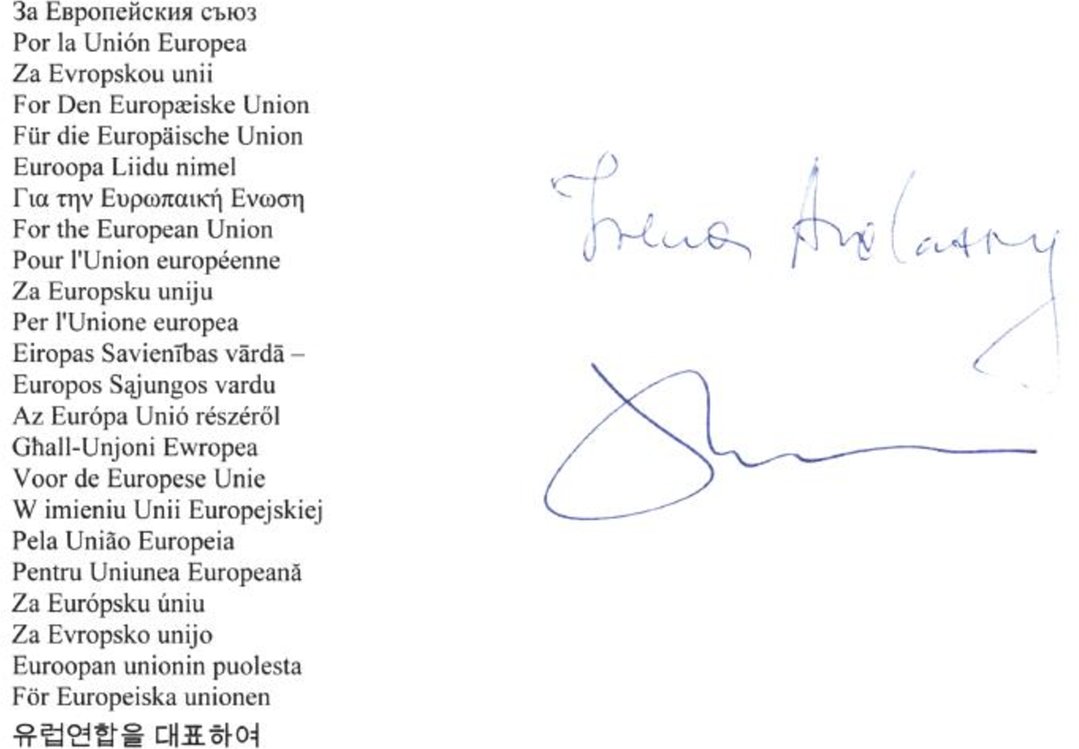 За Европейския съюз
Por la Unión Europea
Za Evropskou unii
For Den Europæiske Union
Für die Europäische Union
Euroopa Liidu nimel
Για την Ευρωπαική Ενωση
For the European Union
Pour l'Union européenne
Za Europsku uniju
Per l'Unione europea
Eiropas Savienības vārdā –
Europos Sąjungos vardu
Az Európa Unió részéről
Għall-Unjoni Ewropea
Voor de Europese Unie
W imieniu Unii Europejskiej
Pela União Europeia
Pentru Uniunea Europeană
Za Európsku úniu
Za Evropsko unijo
Euroopan unionin puolesta
För Europeiska unionen
유럽연합을 대표하여
Irena